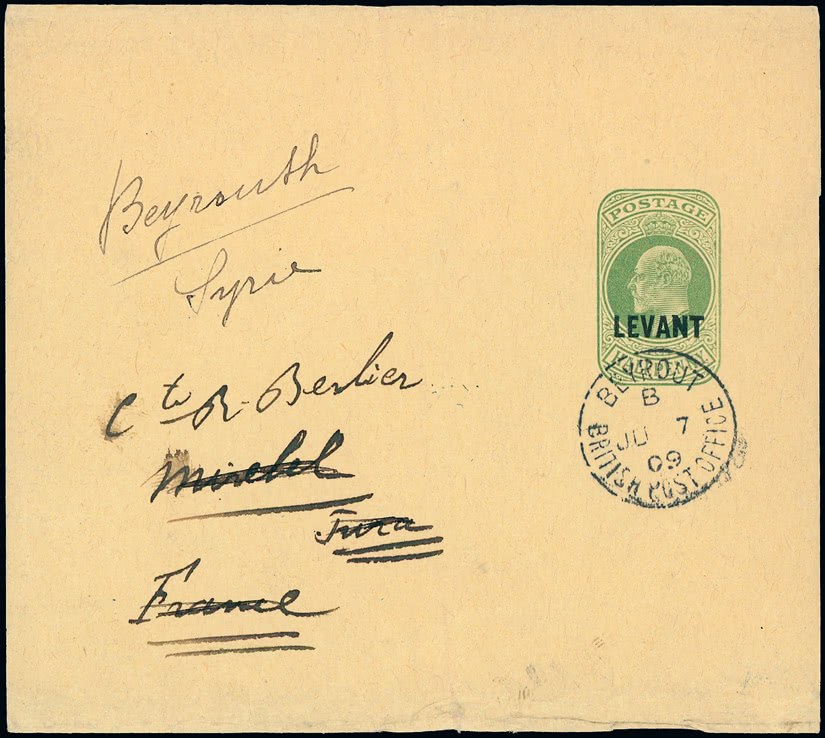 Beyrouth
Syrie
Cte R. Berlier
Mirebel
Jura
France
POSTAGE
LEVANT
HALFPENNY
BEYROUT
B
JU 7
09
BRITISH POST OFFICE